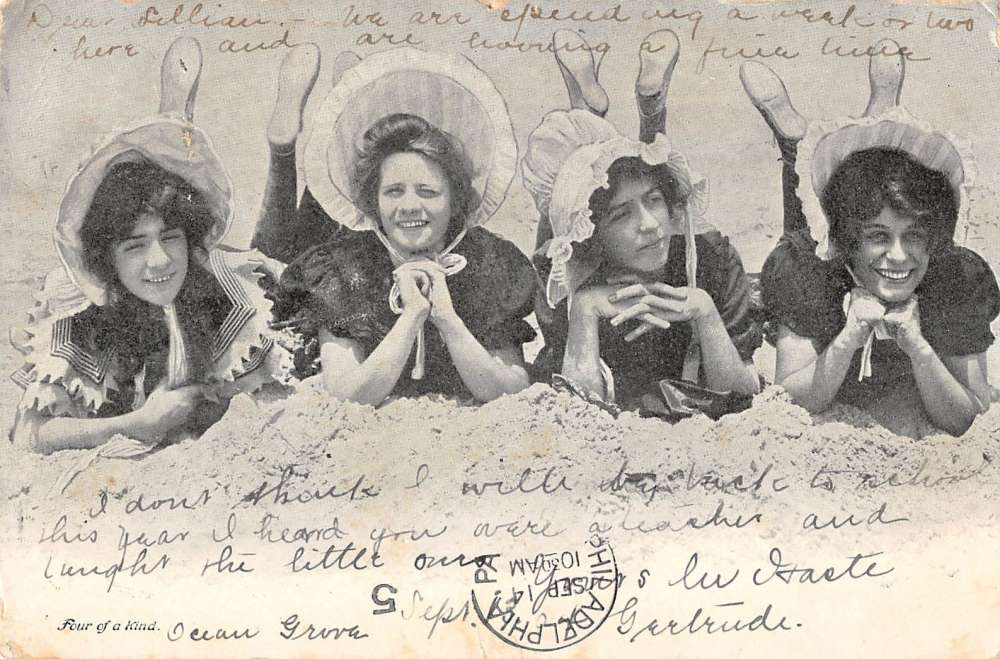 Dear Lillian. - We are spending a week or two
here and are having a fine time
I dont think I will be back to school
this year I heard you were a teacher and
taught the little ones Yours In Haste
Sept. Gertrude.
Four of a Kind. Ocean Grove
PHILADELPHIA, PA.
SEP 14
10 30 AM
5